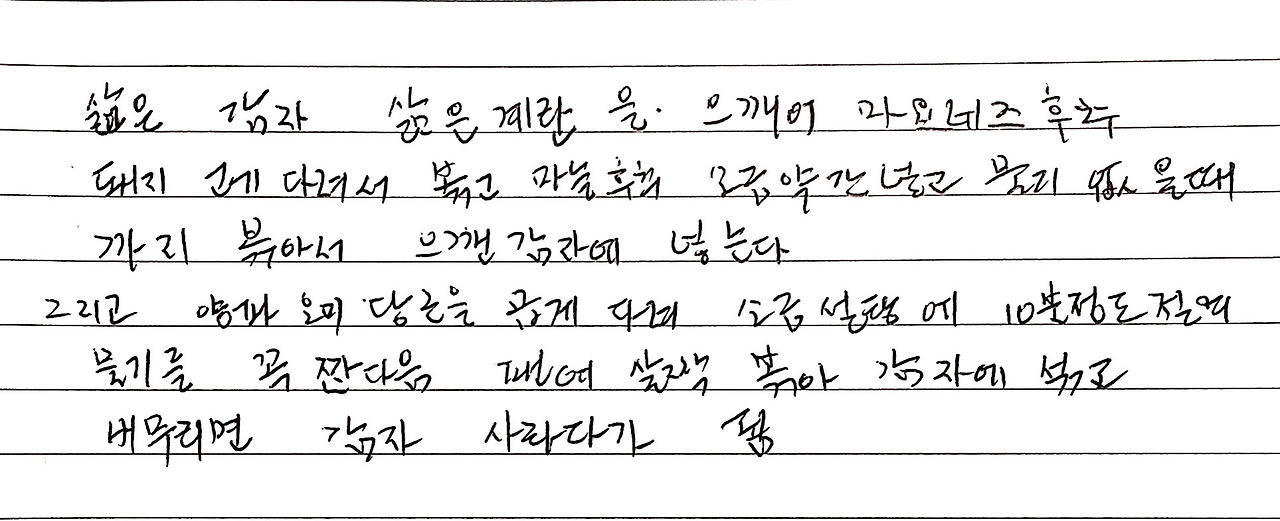 삶은 감자 삶은계란 을. 으깨어 마요네즈 후추
돼지 고게 다려서 볶고 마늘후추 소금약간넣고 물기 없을때
까지 볶아서 으깬감자에 넣는다
그리고 양파 오이 당근을 곱게 다져 소금설탕에 10분정도절여
물기를 꼭 짠다음 팬에 살짝 볶아 감자에 섞고
버무리면 감자 사라다가 됨